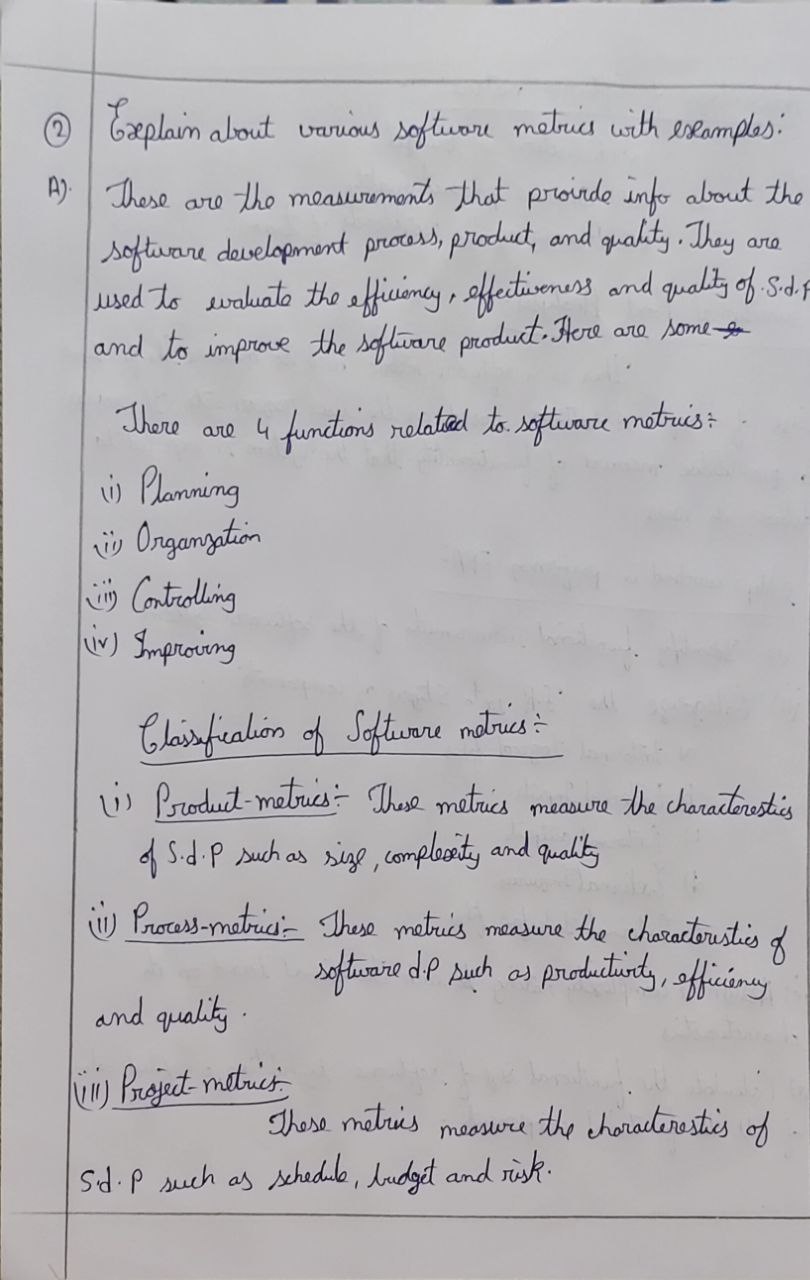 ② Explain about various software metrics with examples:
A). These are the measurements that proivde info about the
software development process, product, and quality. They are
used to evaluate the efficiency, effectiveness and quality of S.d.P
and to improve the software product. Here are some
There are 4 functions related to software metrics:-
(i) Planning
(ii) Organzation
(iii) Controlling
(iv) Improving
Classification of Software metrics:-
(i) Product-metrics:- These metrics measure the characterestics
of S.d.P such as size, complexity and quality
(ii) Process-metrics:- These metrics measure the characteristics of
software d.P such as productivity, efficiency
and quality.
(iii) Project-metrics:-
These metrics measure the characterestics of
S.d.P such as schedule, budget and risk.